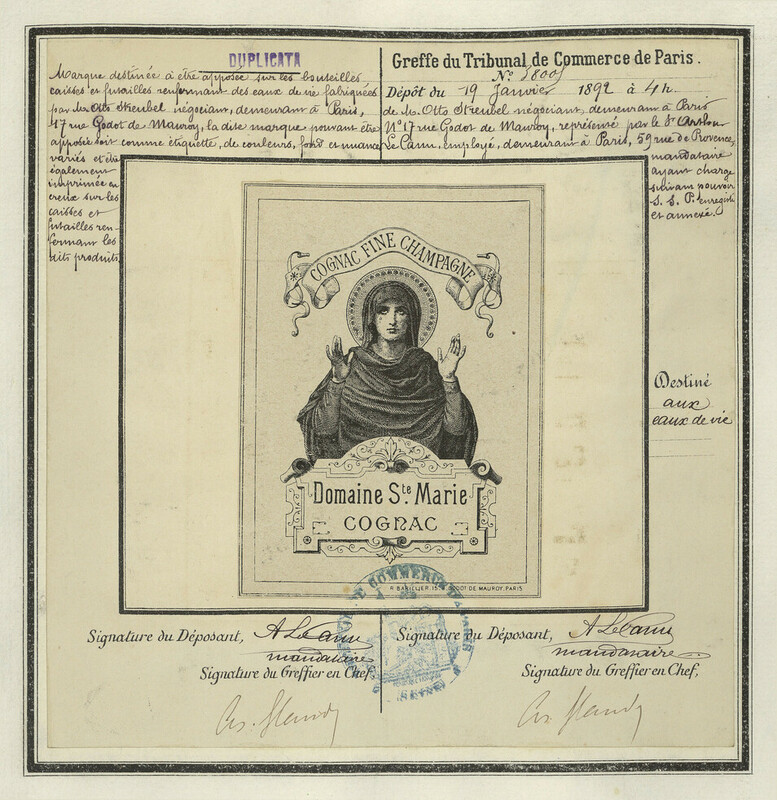 DUPLICATA
Marque destinée à être apposée sur les bouteilles
caisses et futailles renfermant des eaux de vie fabriquées
par M. Otto Streubel négociant, demeurant à Paris,
17 rue Godot de Mauroy, la dite marque pouvant être
apposée soit comme étiquette, de couleurs, fond et nuance
variés et être
également
imprimée en
creux sur les
caisses et
futailles ren-
fermant les
dits produits
Greffe du Tribunal de Commerce de Paris.
Nº
Dépôt du 19 Janvier 1892 à 4 h.
de M. Otto Streubel négociant, demeurant à Paris
Nº 17 rue Godot de Mauroy, représenté par le Sr
Le Cann, employé, demeurant à Paris, 59 rue de Provence,
mandataire
ayant charge
suivant pouvoir
S. S. P. enregistré
et annexé.
COGNAC FINE CHAMPAGNE
Domaine Ste Marie
COGNAC
R. BARILLIER, 15, R. GODOT DE MAUROY, PARIS
Destiné
aux
eaux de vie
COMMERCE
SEINE
Signature du Déposant, A Le Cann
mandataire
Signature du Greffier en Chef,
Signature du Déposant, A Le Cann
mandataire
Signature du Greffier en Chef,